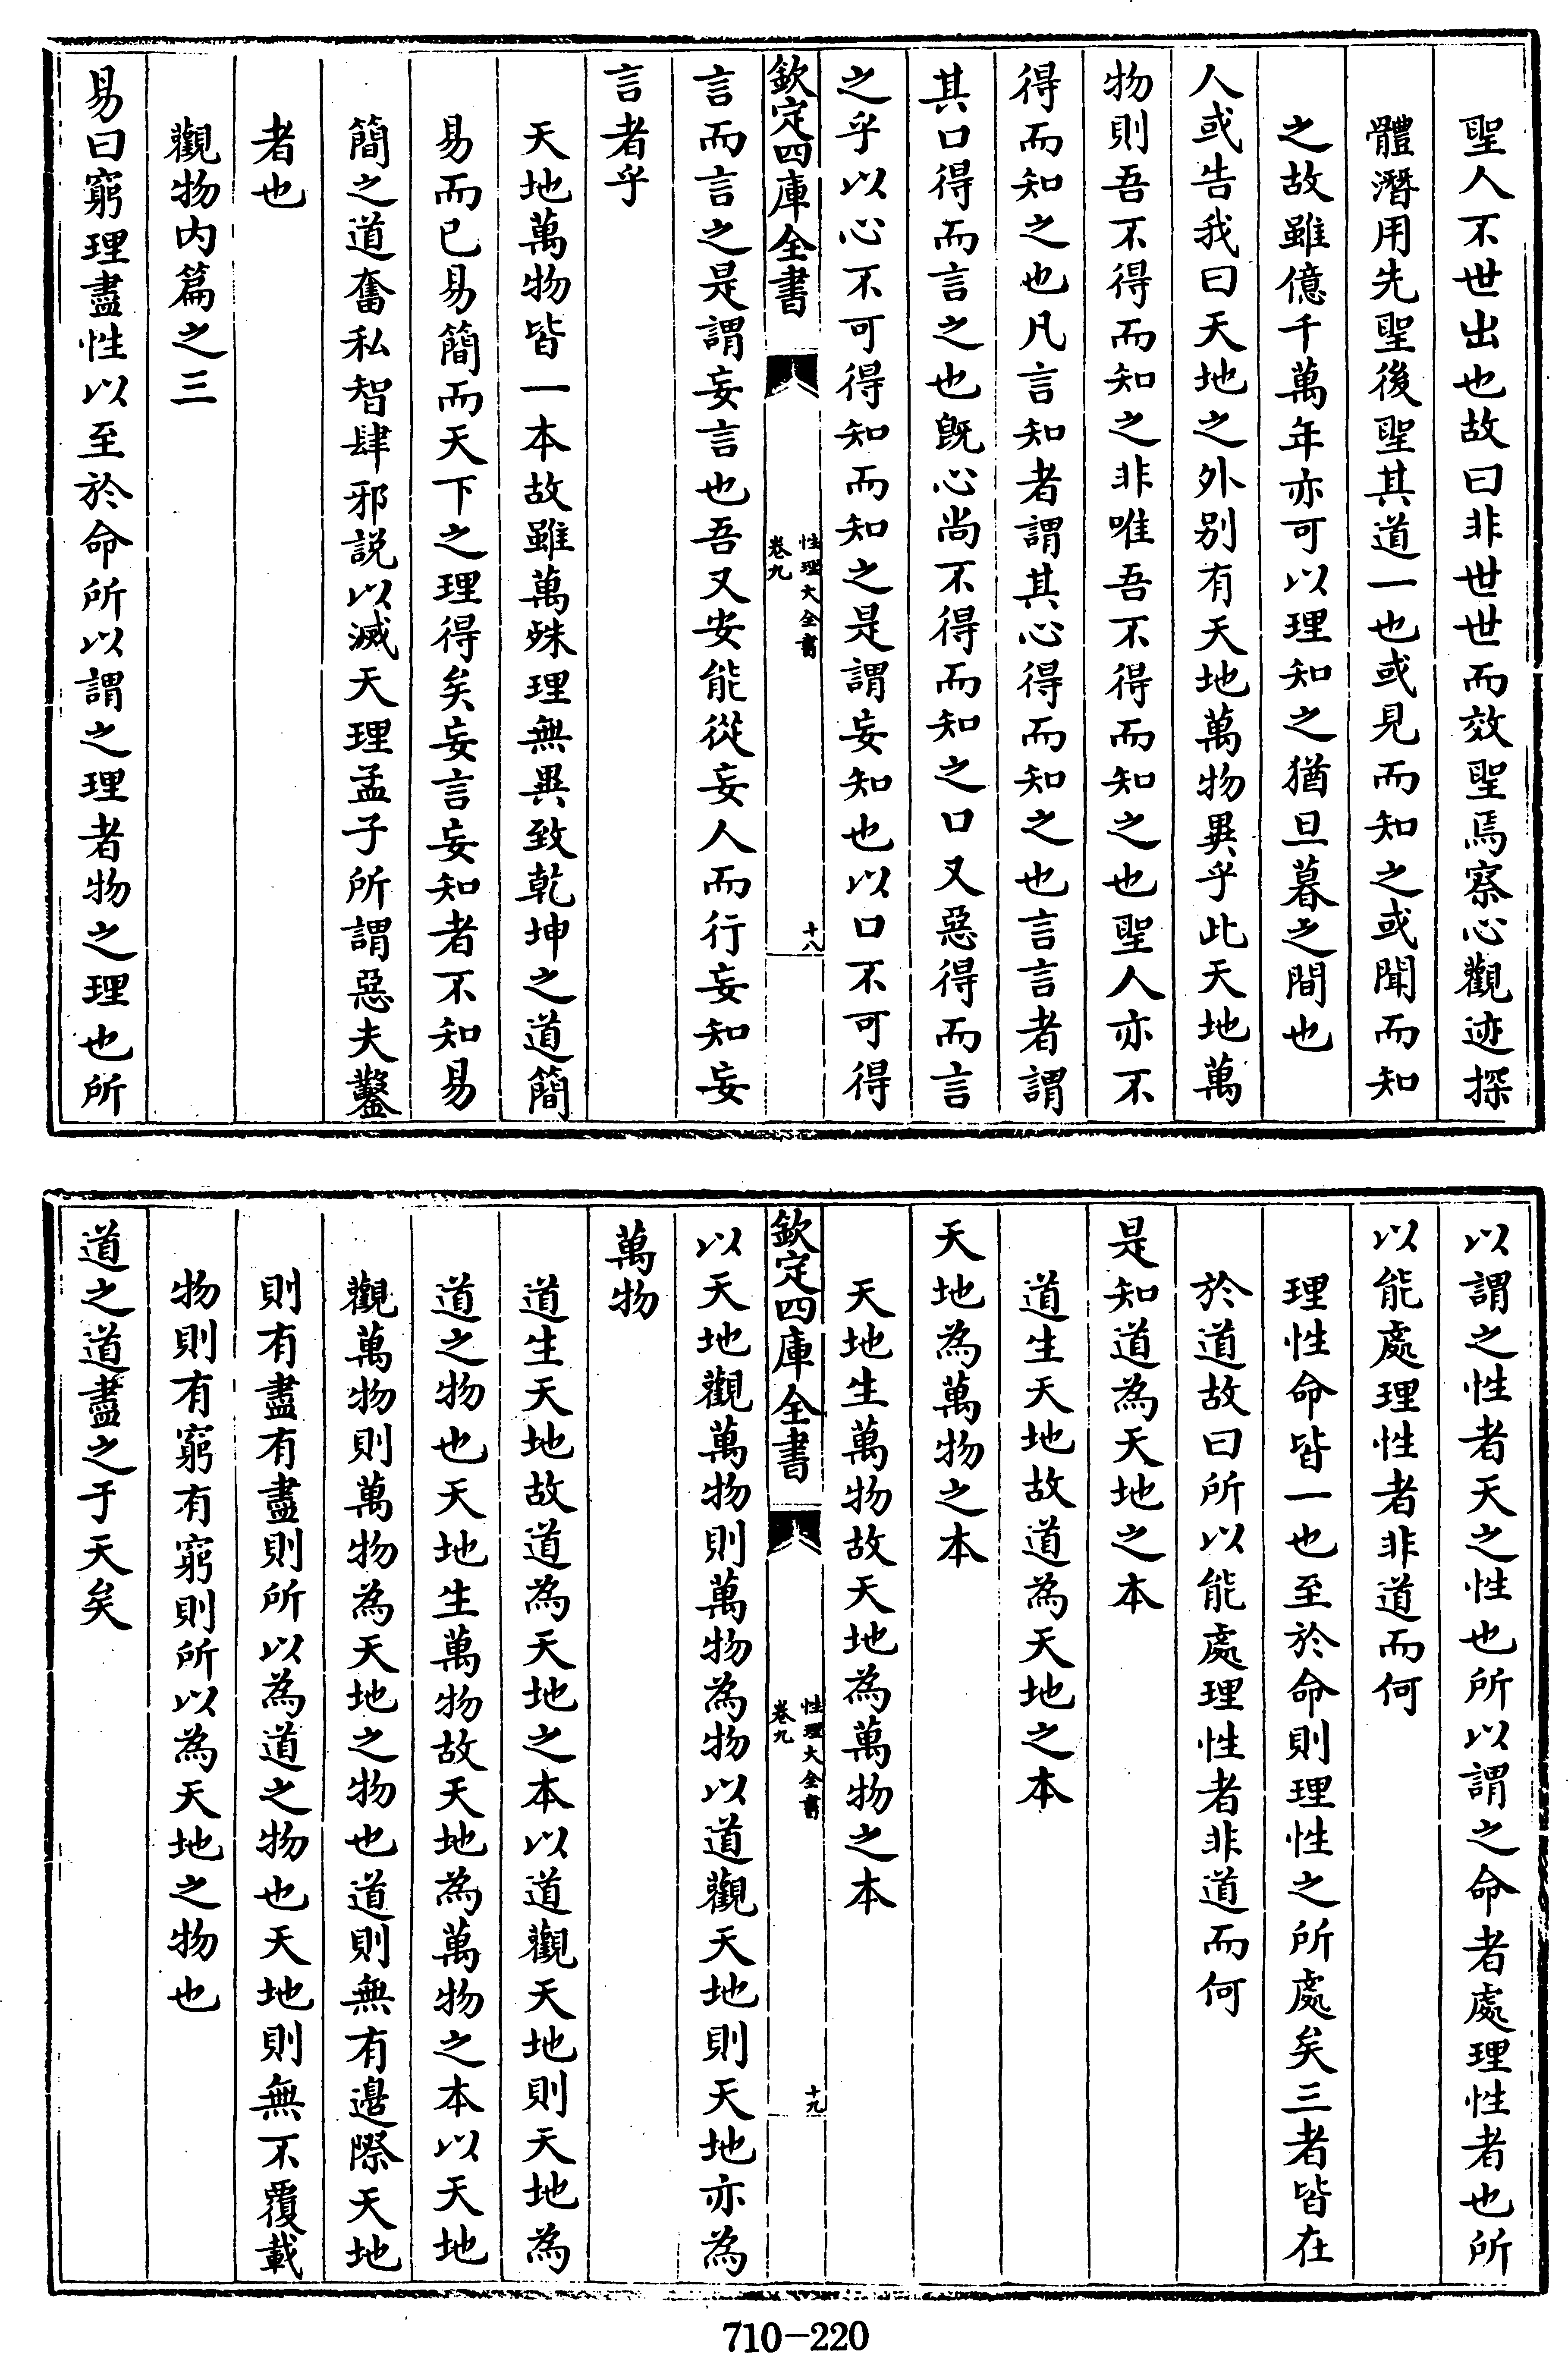 聖人不世出也故曰非世世而效聖焉察心觀迹探
體潛用先聖後聖其道一也或見而知之或聞而知
之故雖億千萬年亦可以理知之猶旦暮之間也
人或告我曰天地之外别有天地萬物異乎此天地萬
物則吾不得而知之非唯吾不得而知之也聖人亦不
得而知之也凡言知者謂其心得而知之也言言者謂
其口得而言之也既心尚不得而知之口又惡得而言
之乎以心不可得知而知之是謂妄知也以口不可得
欽定四庫全書
性理大全書
卷九
十八
言而言之是謂妄言也吾又安能從妄人而行妄知妄
言者乎
天地萬物皆一本故雖萬殊理無異致乾坤之道簡
易而已易簡而天下之理得矣妄言妄知者不知易
簡之道奮私智肆邪説以滅天理孟子所謂惡夫鑿
者也
觀物内篇之三
易曰窮理盡性以至於命所以謂之理者物之理也所
以謂之性者天之性也所以謂之命者處理性者也所
以能處理性者非道而何
理性命皆一也至於命則理性之所處矣三者皆在
於道故曰所以能處理性者非道而何
是知道為天地之本
道生天地故道為天地之本
天地為萬物之本
天地生萬物故天地為萬物之本
欽定四庫全書
性理大全書
卷九
十九
以天地觀萬物則萬物為物以道觀天地則天地亦為
萬物
道生天地故道為天地之本以道觀天地則天地為
道之物也天地生萬物故天地為萬物之本以天地
觀萬物則萬物為天地之物也道則無有邊際天地
則有盡有盡則所以為道之物也天地則無不覆載
物則有窮有窮則所以為天地之物也
道之道盡之于天矣
710-220